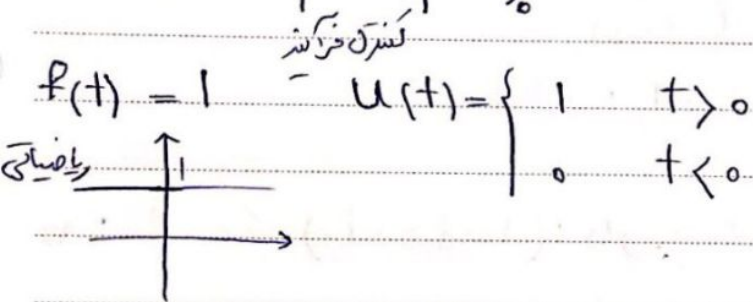 کنترل فرآیند
f(t) = 1 u(t) = { 1 t > 0
0 t < 0
ریاضیاتی 1